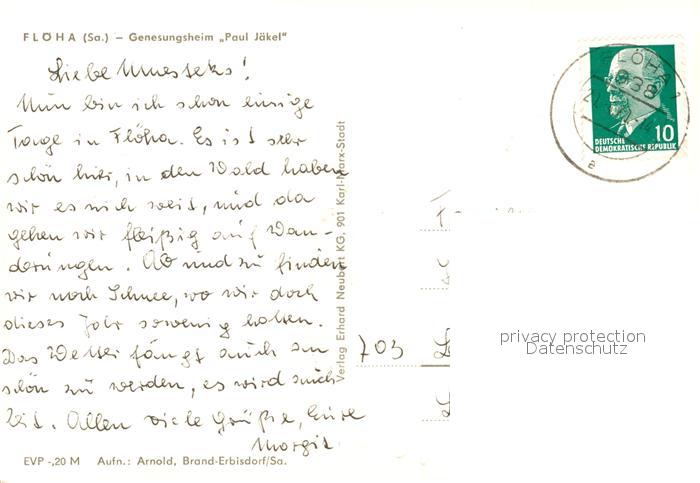 FLÖHA (Sa.) – Genesungsheim „Paul Jäkel"
Liebe
Nun bin ich schon einige
Tage in Flöha. Es ist sehr
schön hier, in den Wald haben
wir es nich weit, und da
gehen wir fleißig auf Wan-
derungen. Ab und zu finden
wir noch Schnee, wo wir doch
dieses Jahr sowenig hatten.
Das Wetter fängt auch an
schön zu werden, es wird auch
Zeit. Allen viele Grüße, Eure
Margit
EVP -,20 M Aufn.: Arnold, Brand-Erbisdorf/Sa.
Verlag Erhard Neubert KG, 901 Karl-Marx-Stadt
FLÖHA 1
938
a
10
DEUTSCHE
DEMOKRATISCHE REPUBLIK
703 L
L
privacy protection
Datenschutz